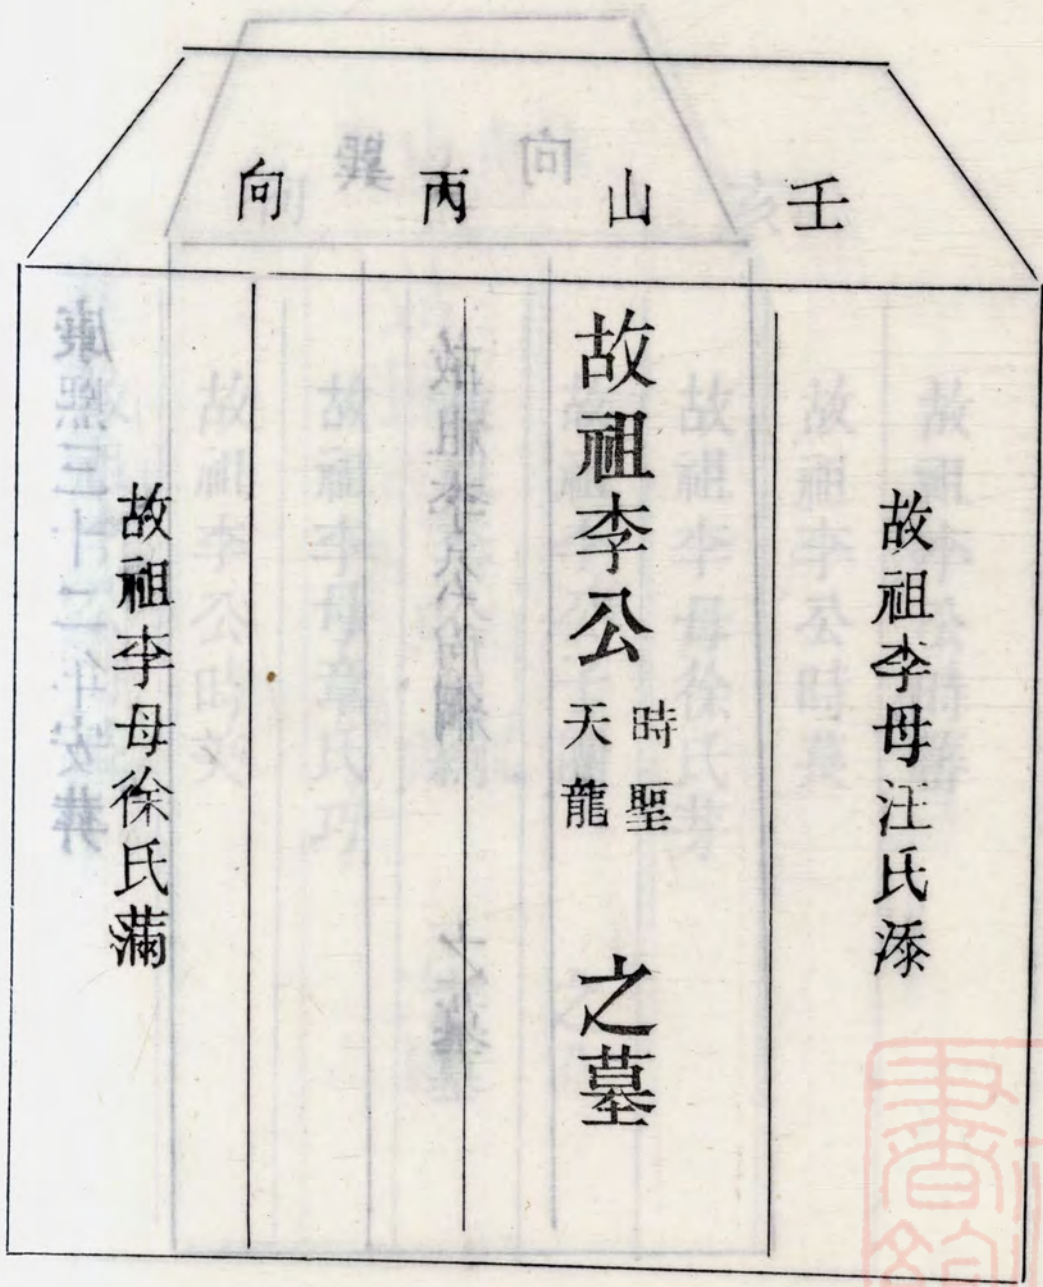 壬山丙向
故祖李母汪氏添
故祖李公
時聖
天龍
之墓
故祖李母徐氏滿